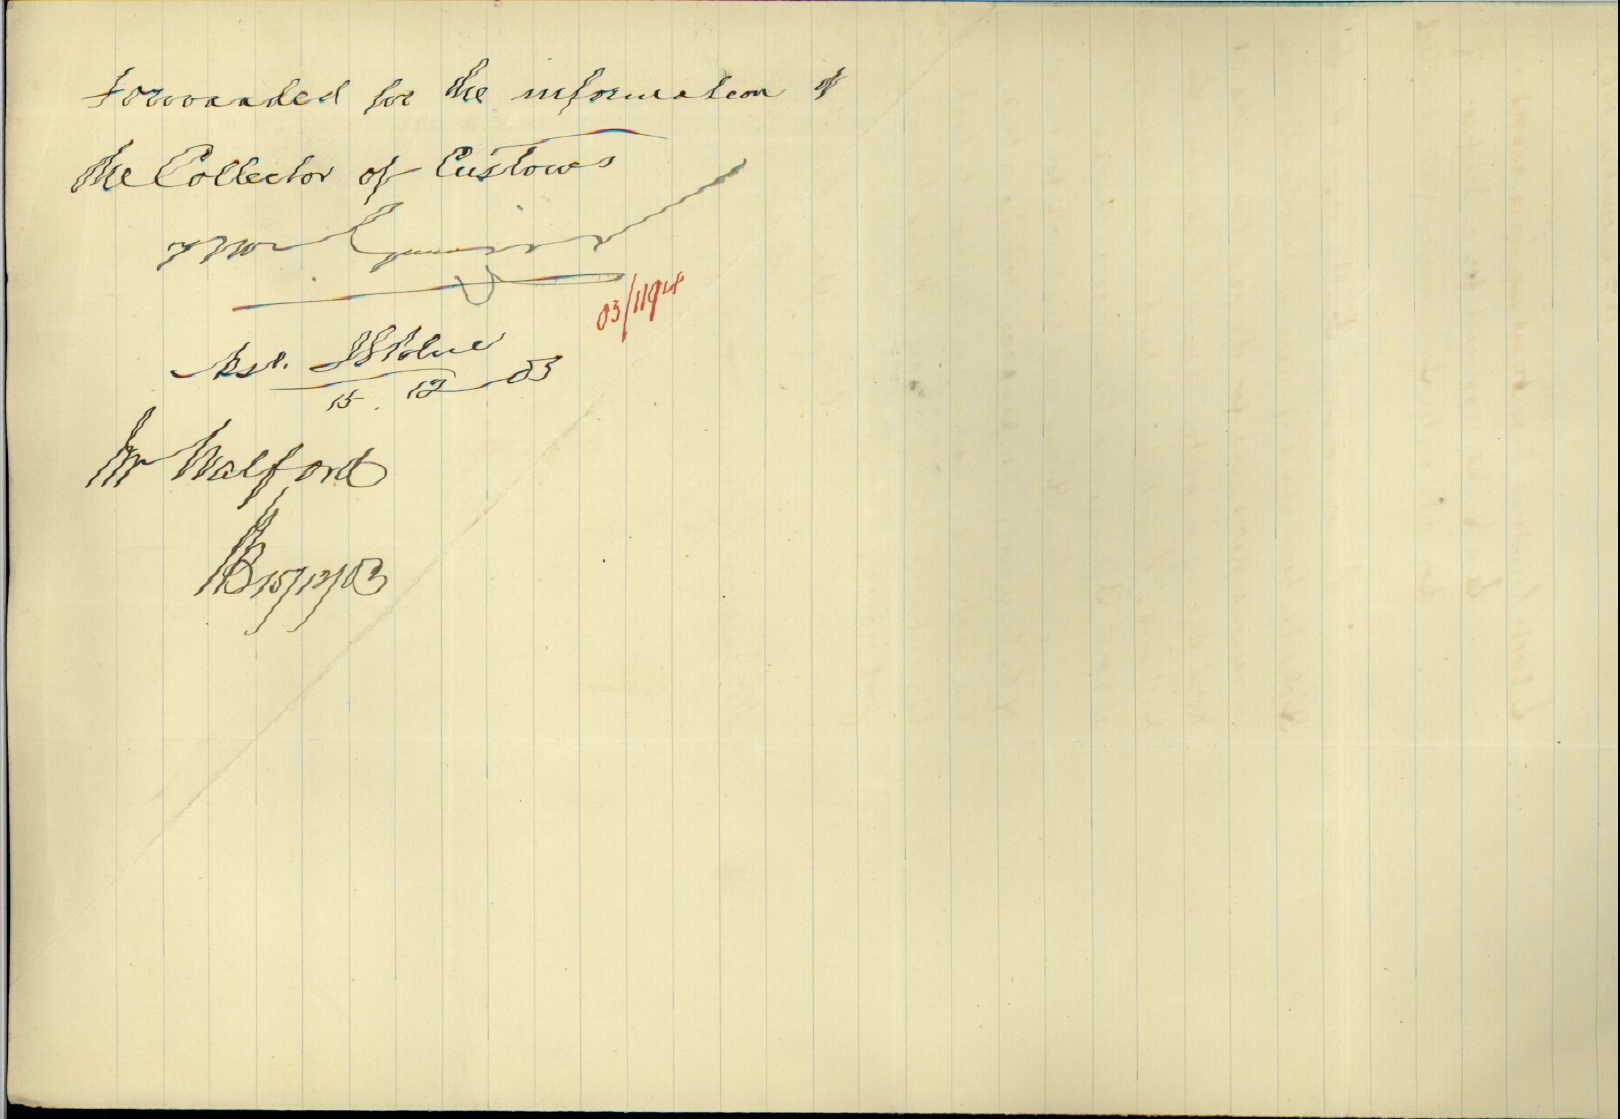 Forwarded for the information of
the Collector of Customs
03/11914
15. 12 03
Mr Walford
15/12/03